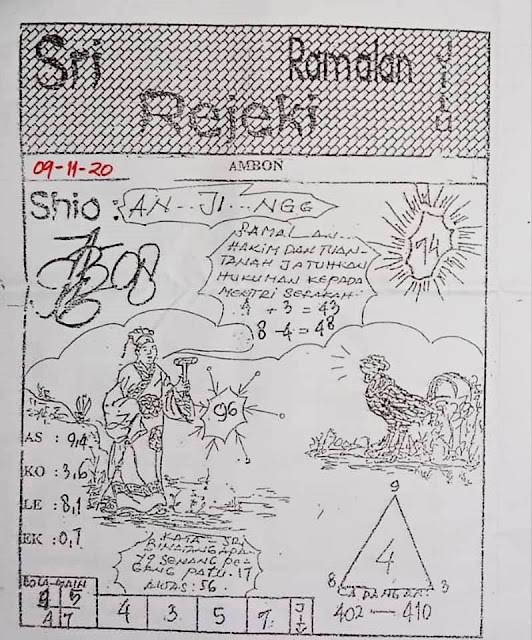 Sri
Ramalan
Rejeki
JITU
09-11-20
AMBON
Shio : AN...JI...NGG
RAMALAN...
HAKIM DAN TUAN
TANAH JATUHKAN
HUKUMAN KEPADA
MENTRI SERAKAH.
4 + 3 = 43
8 - 4 = 48
74
96
AS : 9,4
KO : 3,6
LE : 8,1
EK : 0,7
KATA SRI
BINATANG APA
YG SENANG PE-
GANG PALU. 17
AWAS : 56.
9
4
8
3
CADANGAN:
402 — 410
BOLA MAIN
5
4 7
4 3 5 7. JITU